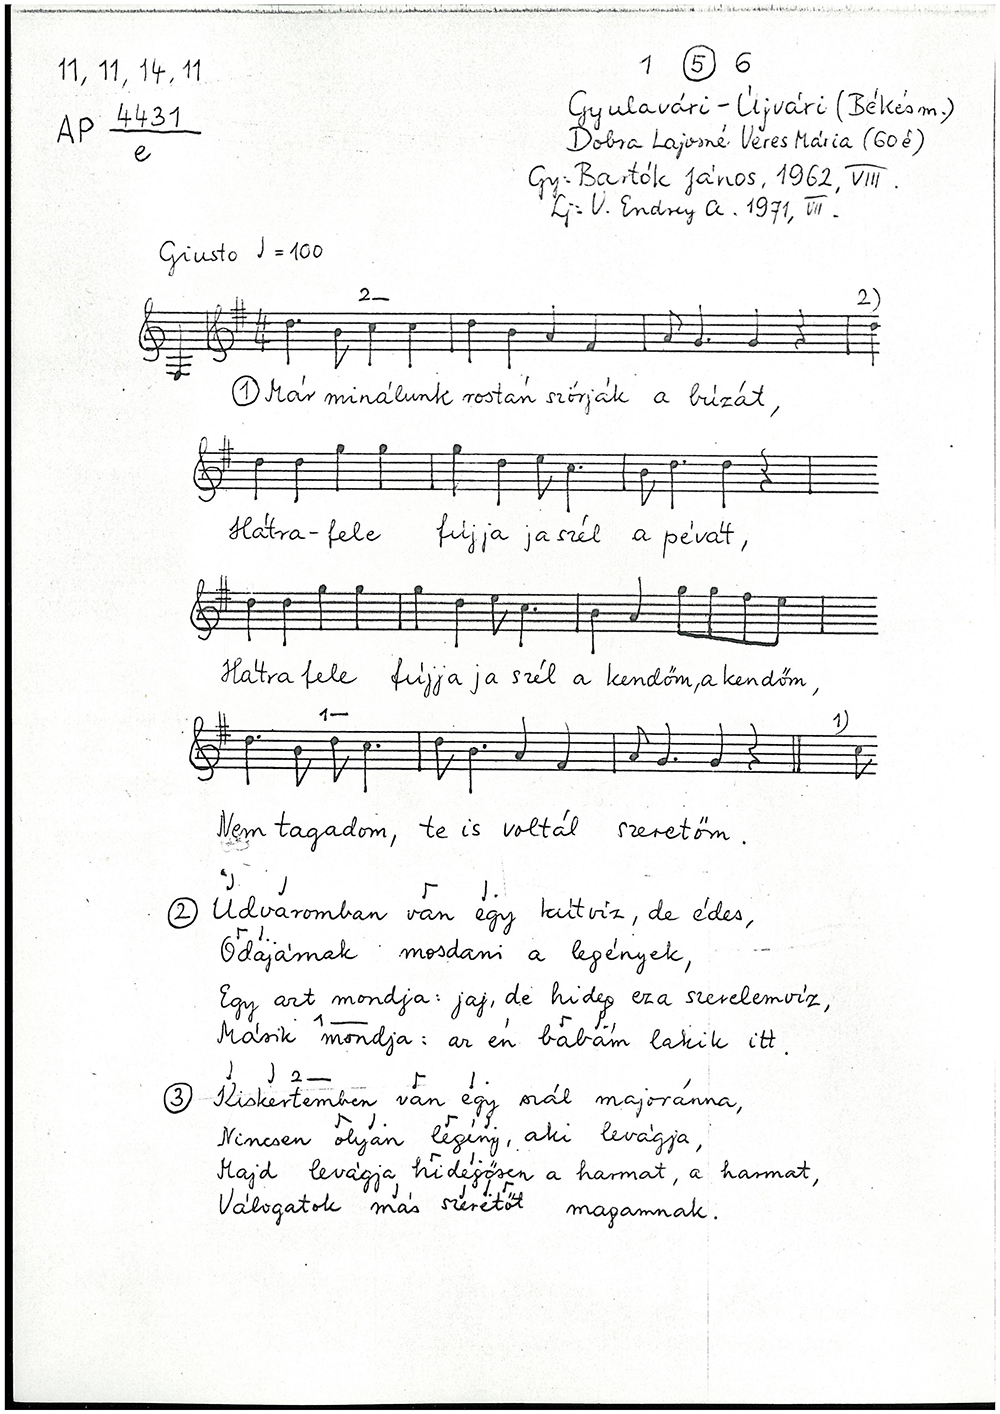 11, 11, 14, 11
AP 4431
e
1 5 6
Gyulavári-Újvári (Békés m.)
Dobra Lajosné Veres Mária (60 é)
Gy: Bartók János, 1962, VIII.
Lj: V. Endrey A. 1971, VII.
Giusto ♩=100
2—
2)
4
4
1 Már minálunk rostán szórják a búzát,
Hátra-fele fújja ja szél a pévát,
Hátra fele fújja ja szél a kendőm, a kendőm,
1—
1)
Nem tagadom, te is voltál szeretőm.
2 Udvaromban van egy kútvíz, de édes,
Odajárnak mosdani a legények,
Egy azt mondja: jaj, de hideg eza szerelemvíz,
1—
Másik mondja: az én babám lakik itt.
2—
3 Kiskertemben van egy szál majoránna,
Nincsen olyan legény, aki levágja,
Majd levágja hidegősen a harmat, a harmat,
Válogatok más szeretőt magamnak.